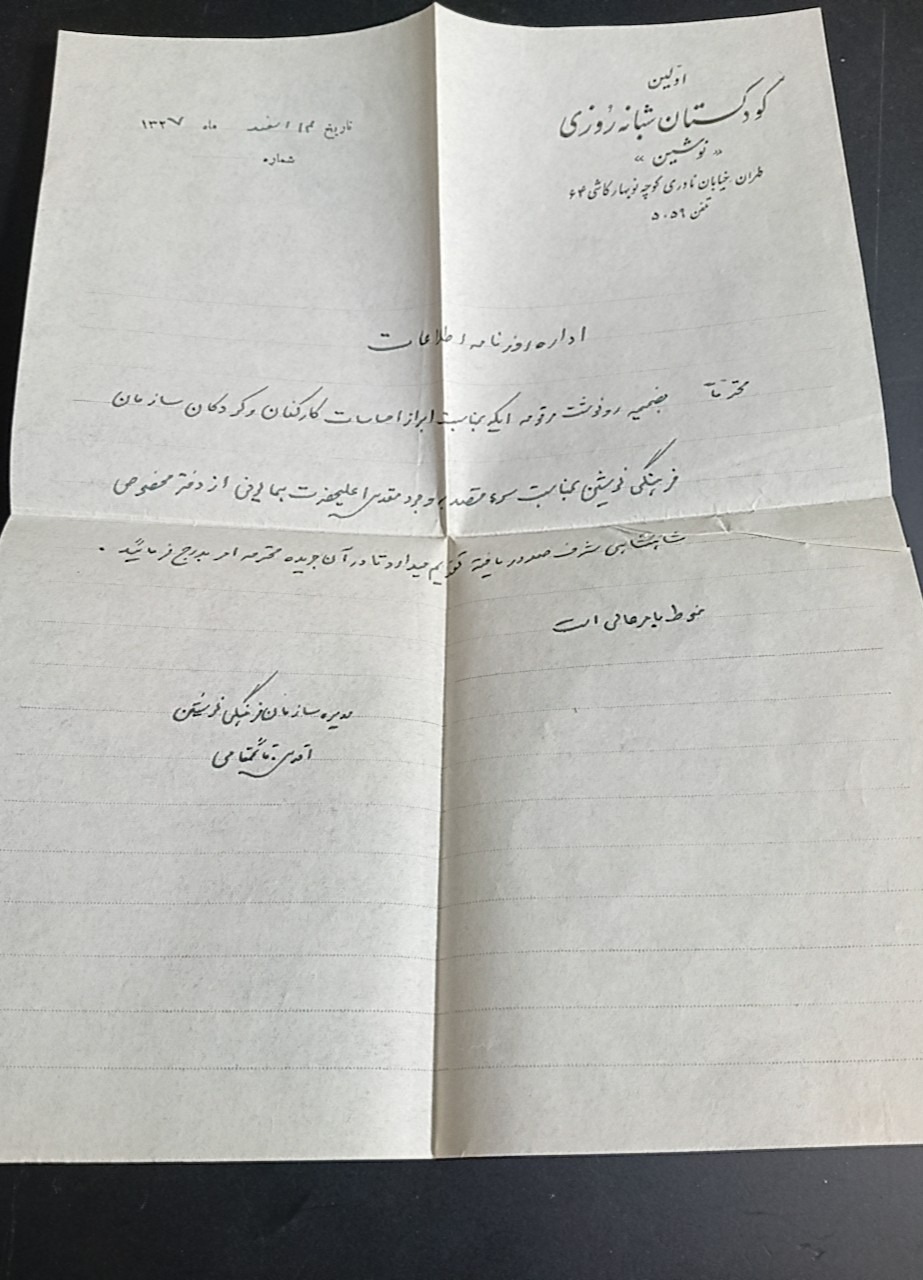 اوّلین
کودکستان شبانه رُوزی
« نوشین »
طهران خیابان نادری کوچه نوبهار کاشی ۶۴
تلفن ۵۰۵۹
تاریخ ۱۴ اسفند ماه ۱۳۲۷
شماره
اداره روزنامه اطلاعات
محترماً بضمیمه رونوشت مرقومه ایکه بمناسبت ابراز احساسات کارکنان و کودکان سازمان
فرهنگی نوشین بمناسبت سوء قصد به وجود مقدس اعلیحضرت همایونی از دفتر مخصوص
شاهنشاهی شرف صدور یافته تقدیم میدارد تا در آن جریده محترمه امر بدرج فرمائید .
منوط بامر عالی است
مدیره سازمان فرهنگی نوشین
اقدس قائممقامی